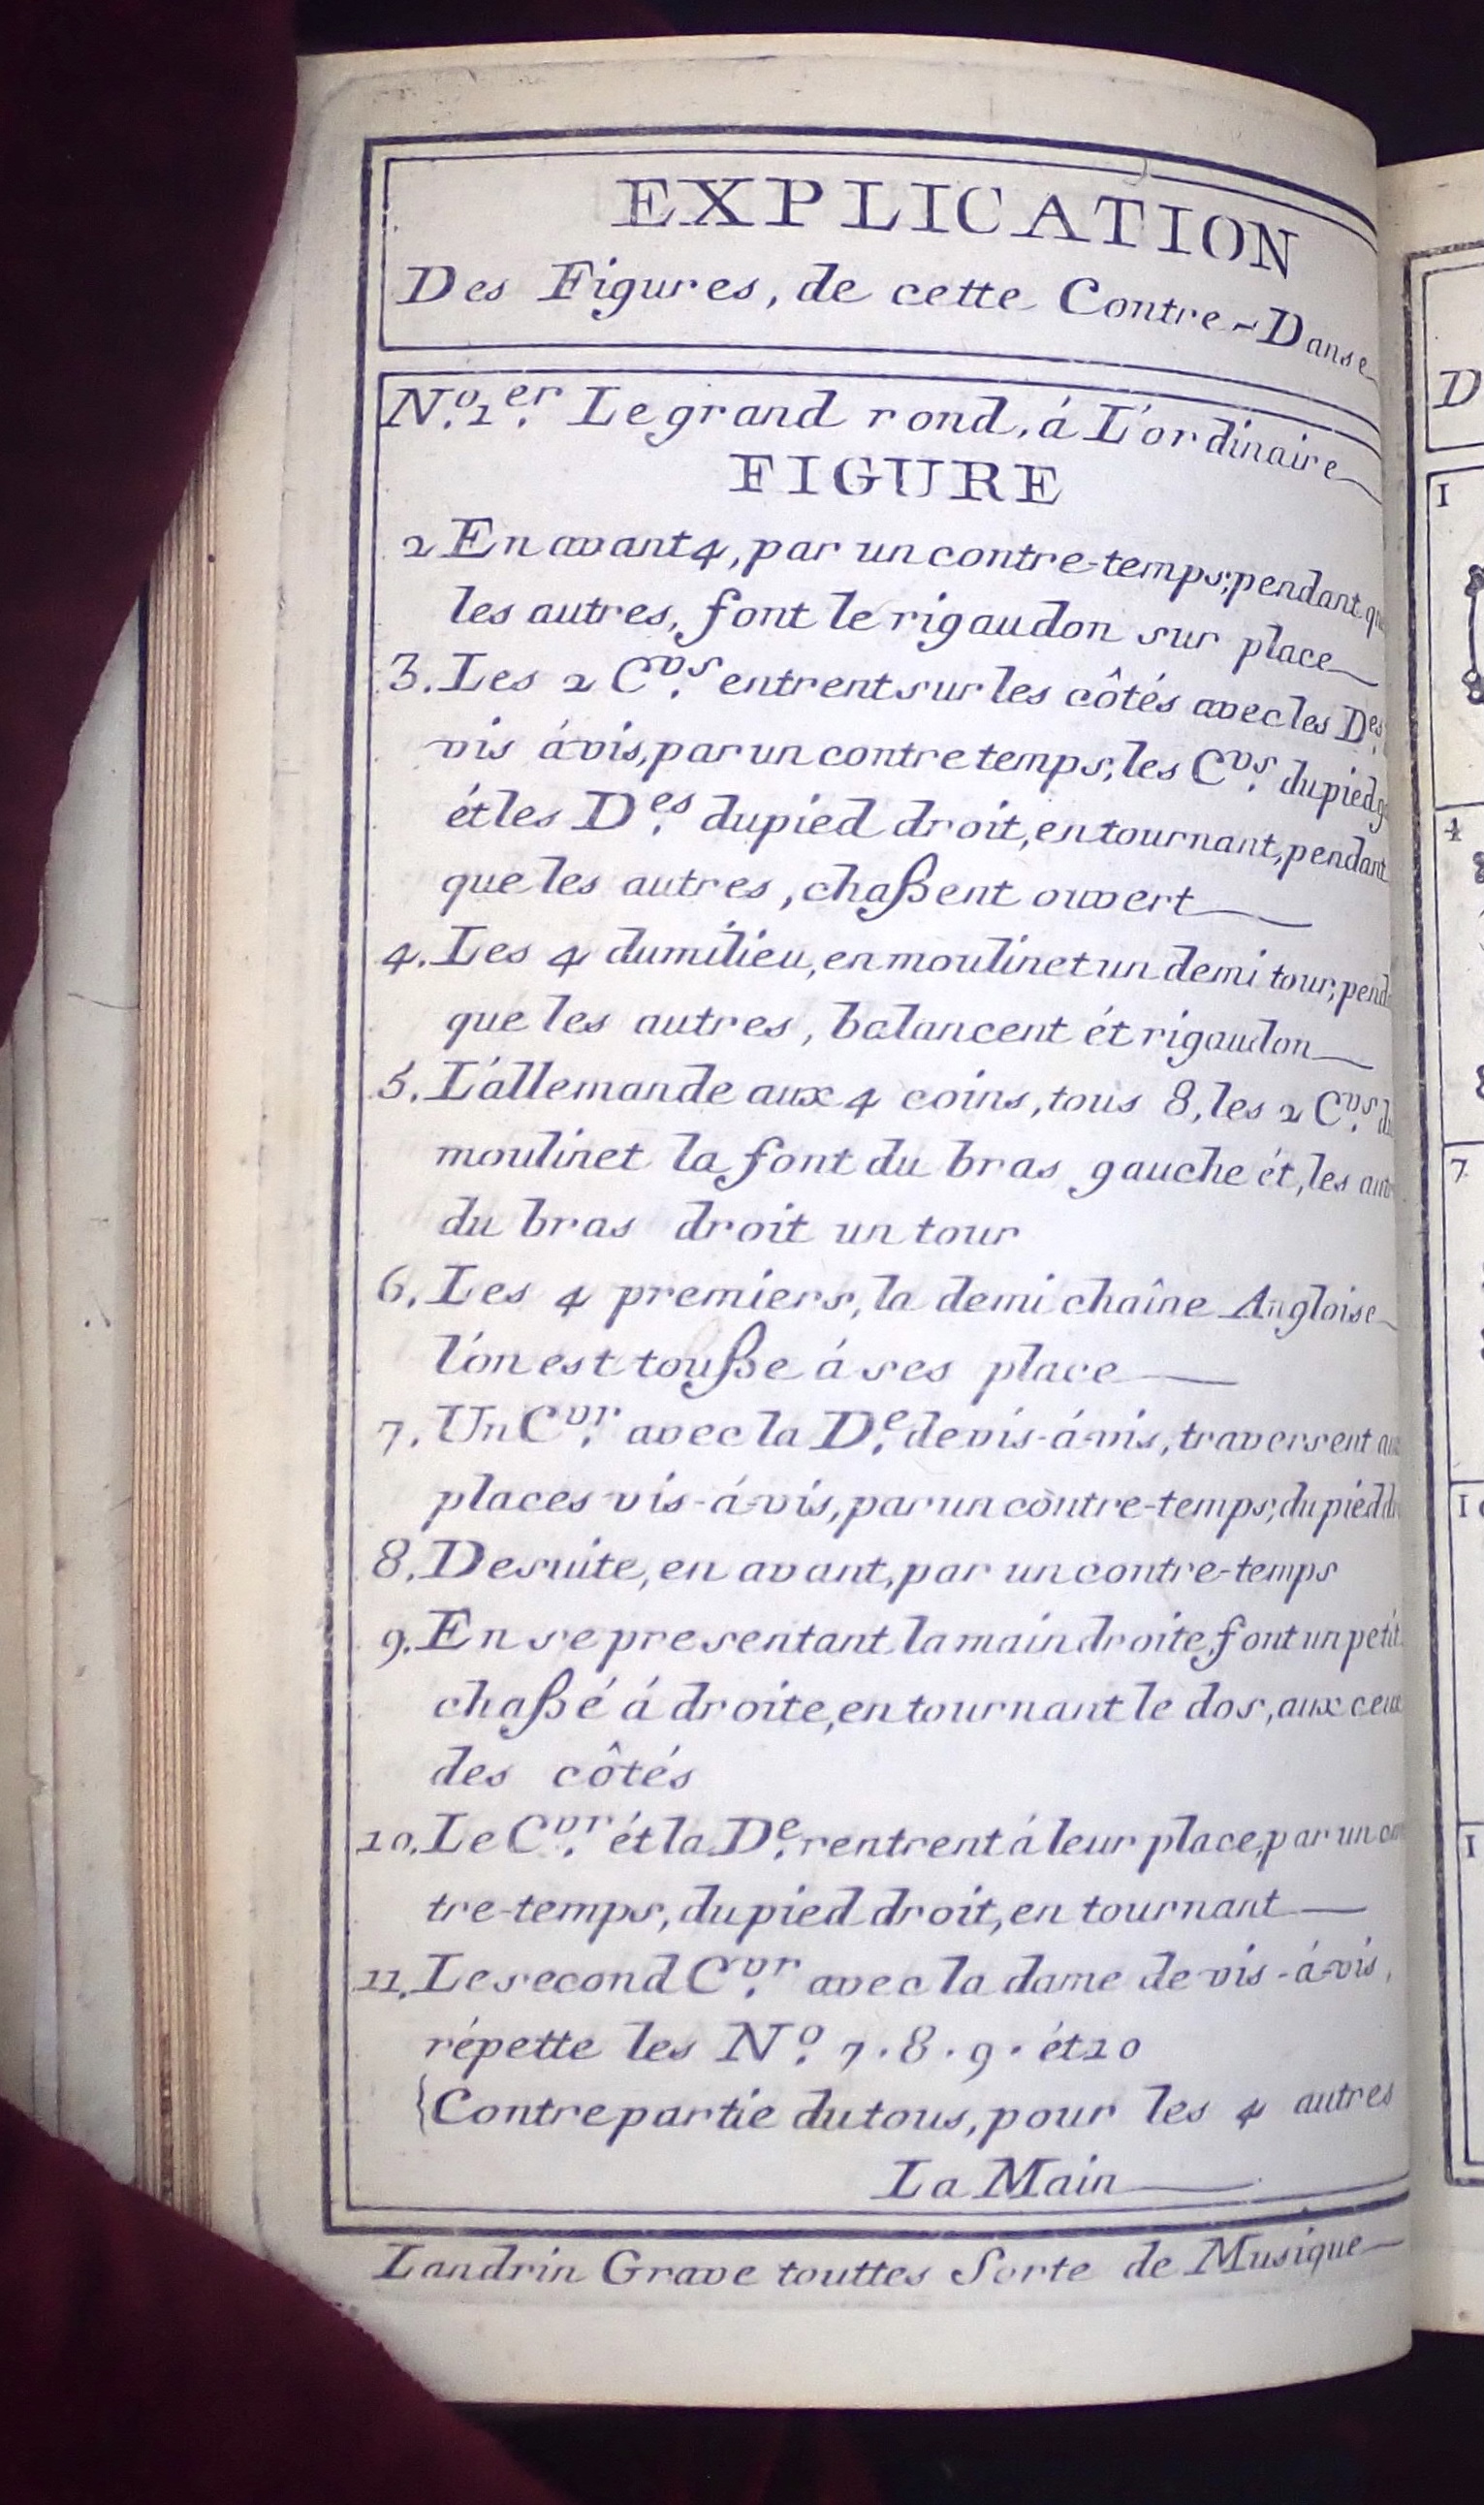 EXPLICATION
Des Figures, de cette Contre-Danse
N.º 1.er Le grand rond, á L'ordinaire
FIGURE
2 En avant 4, par un contre-temps; pendant
les autres, font le rigaudon sur place
3. Les 2 C.vrs entrent sur les côtés avec les D.es
vis á vis, par un contre temps, les C.vrs du pied
ét les D.es du pied droit, en tournant, pendant
que les autres, chaßent ouvert
4. Les 4 du milieu, en moulinet un demi tour,
que les autres, balancent ét rigaudon
5. L'allemande aux 4 coins, tous 8, les 2 C.vrs
moulinet la font du bras gauche ét, les
du bras droit un tour
6. Les 4 premiers, la demi chaîne Angloise
l'on est toußе á ses place
7. Un C.vr avec la D.e de vis-á-vis, traversent
places vis-á-vis, par un contre-temps, du pied
8. De suite, en avant, par un contre-temps
9. En se presentant la main droite, font un petit
chaßé á droite, en tournant le dos, aux ceux
des côtés
10. Le C.vr ét la D.e rentrent á leur place, par un
tre-temps, du pied droit, en tournant
11. Le second C.vr avec la dame de vis-á-vis,
répette les Nº. 7. 8. 9. ét 10
{Contrepartie du tous, pour les 4 autres
La Main
Landrin Grave touttes Sorte de Musique
D
1
4
7
1
1